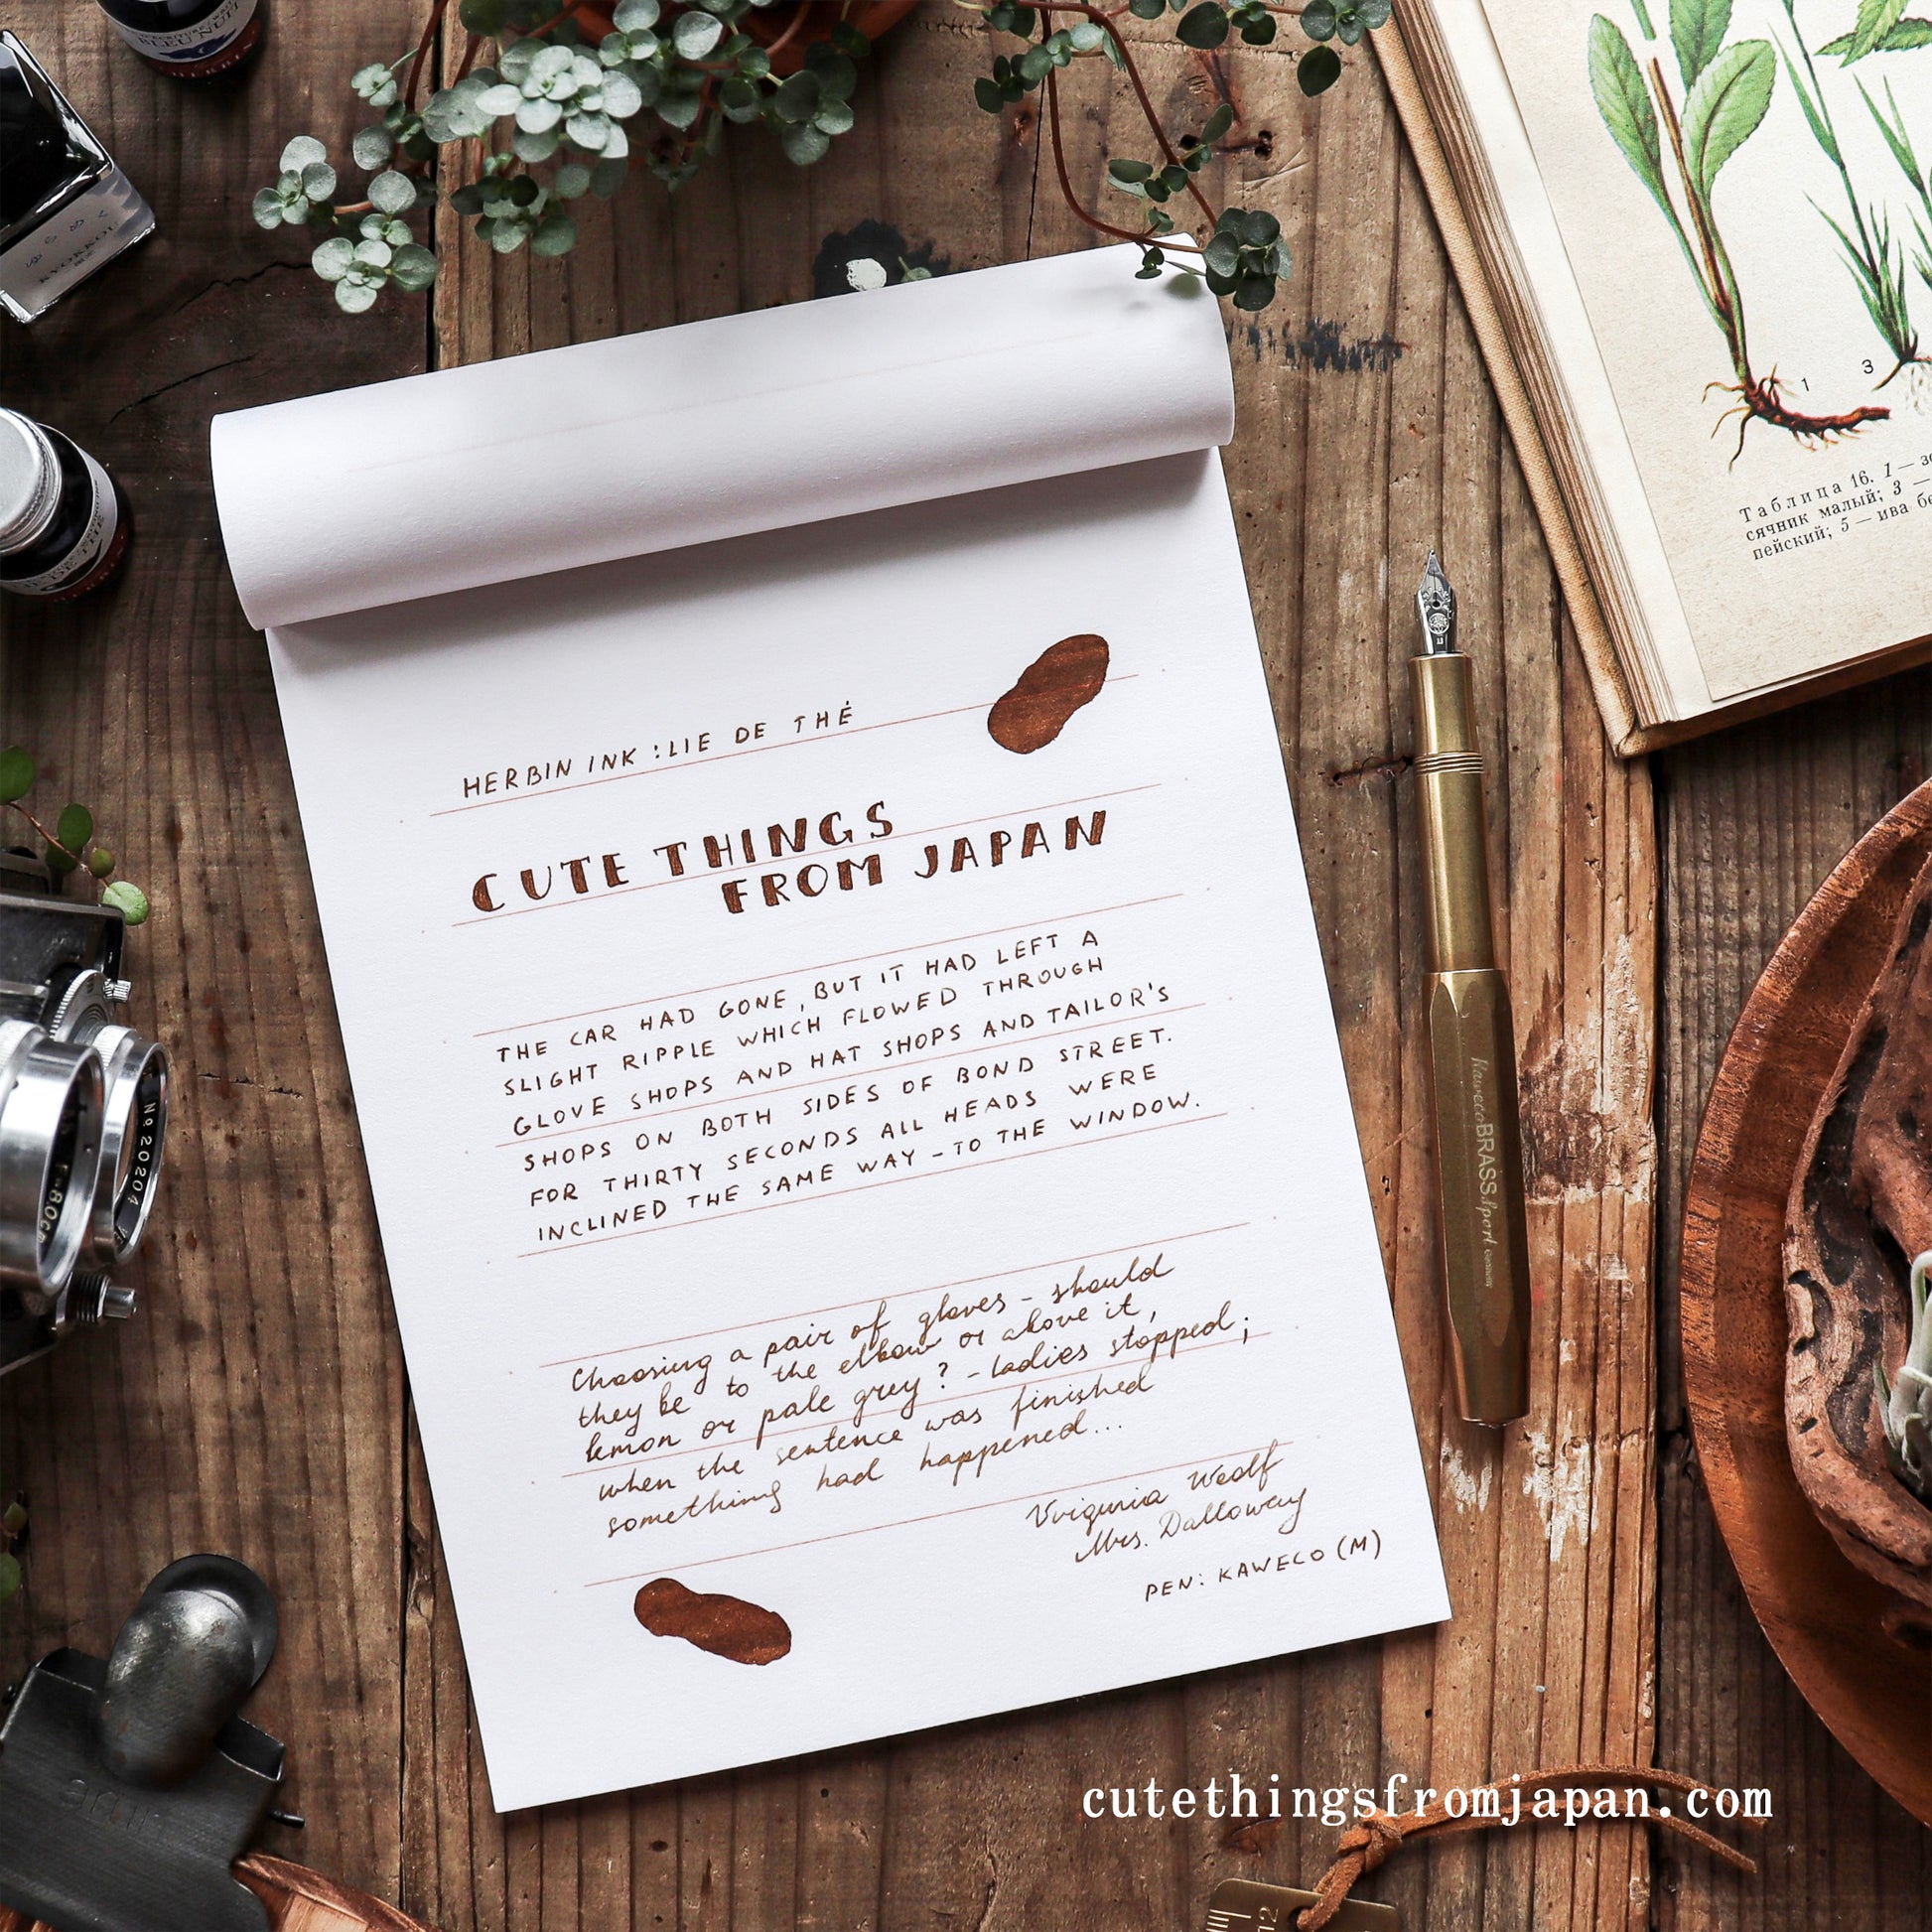 BLEU NUIT
KYOKKOU
HERBIN INK : LIE DE THÉ
CUTE THINGS
FROM JAPAN
THE CAR HAD GONE, BUT IT HAD LEFT A
SLIGHT RIPPLE WHICH FLOWED THROUGH
GLOVE SHOPS AND HAT SHOPS AND TAILOR'S
SHOPS ON BOTH SIDES OF BOND STREET.
FOR THIRTY SECONDS ALL HEADS WERE
INCLINED THE SAME WAY - TO THE WINDOW.
Choosing a pair of gloves - should
they be to the elbow or above it,
lemon or pale grey? - Ladies stopped;
when the sentence was finished
something had happened...
Virginia Woolf
Mrs. Dalloway
PEN: KAWECO (M)
KawecoBRASSSport
1 3
Таблица 16. 1 —
сячник малый; 3 —
пейский; 5 — ива
No 20204
cutethingsfromjapan.com
12